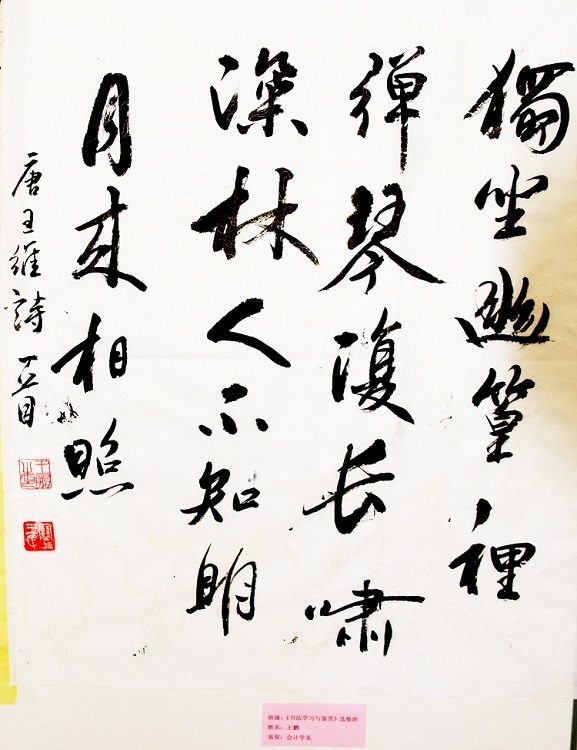 獨坐幽篁裡
彈琴復长嘯
深林人不知明
月来相照
唐王維詩
班级：《书法学习与鉴赏》选修班
姓名：王鹏
系别：会计学系